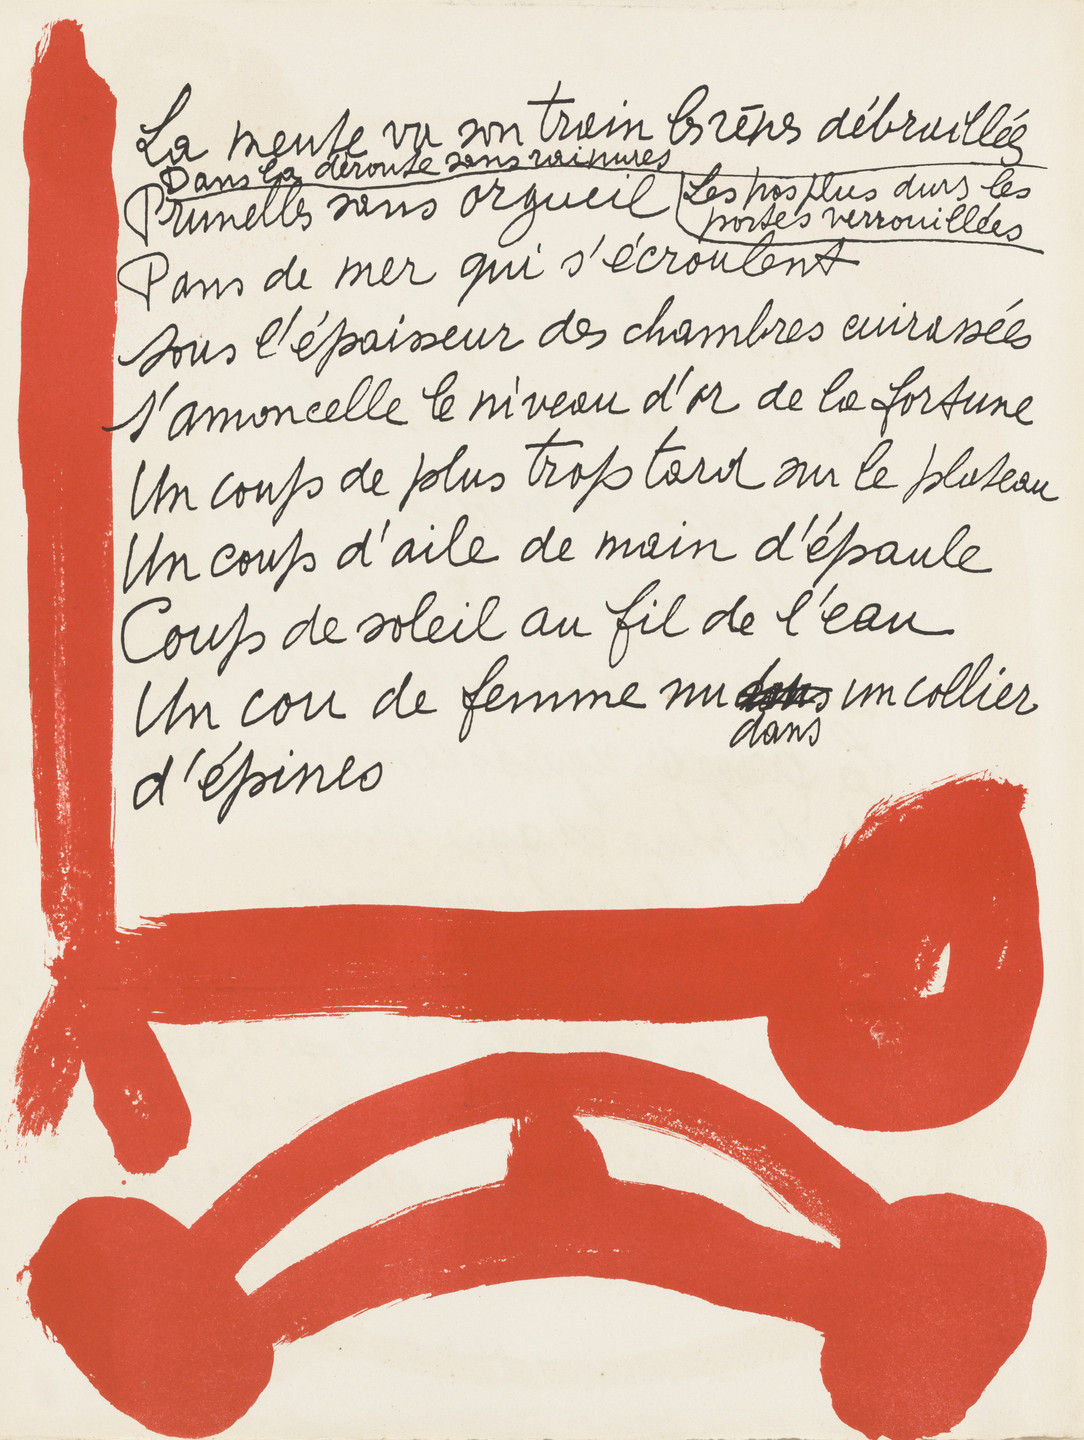 La meute va son train les rênes débrouillées
Dans la déroute sans rainures
Prunelles sans orgueil
Les pas plus durs les
portes verrouillées
Pans de mer qui s'écroulent
Sous l'épaisseur des chambres cuirassées
S'amoncelle le niveau d'or de la fortune
Un coup de plus trop tard sur le plateau
Un coup d'aile de main d'épaule
Coup de soleil au fil de l'eau
Un cou de femme nu dans un collier
dans
d'épines